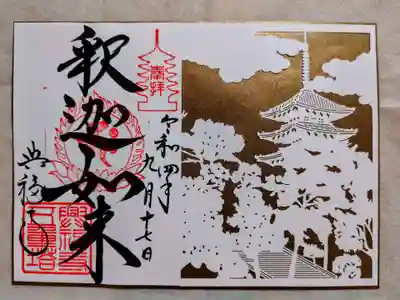 奉拝
令和四年
九月十七日
釋迦如来
興福寺
興福寺
五重塔